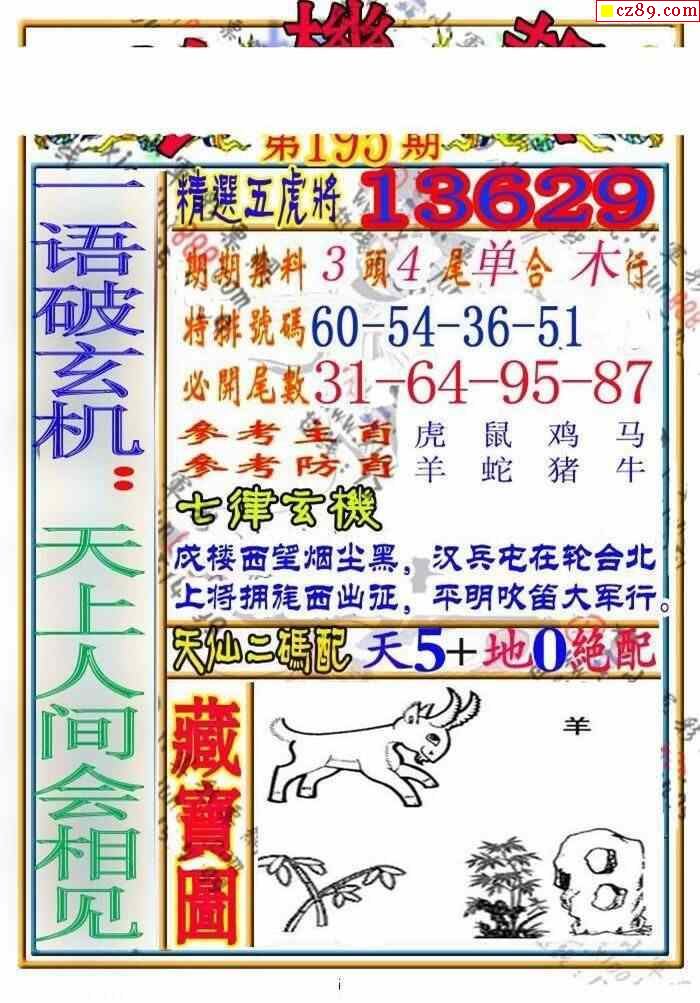 cz89.com
第195期
一语破玄机：天上人间会相见
精選五虎將 13629
期期禁料 3 頭 4 尾 单 合 木 行
特排號碼 60-54-36-51
必開尾數 31-64-95-87
參考主肖 虎 鼠 鸡 马
參考防肖 羊 蛇 猪 牛
七律玄機
戍楼西望烟尘黑，汉兵屯在轮台北
上将拥旄西出征，平明吹笛大军行。
天仙二碼配 天5+地0絕配
藏寶圖
羊